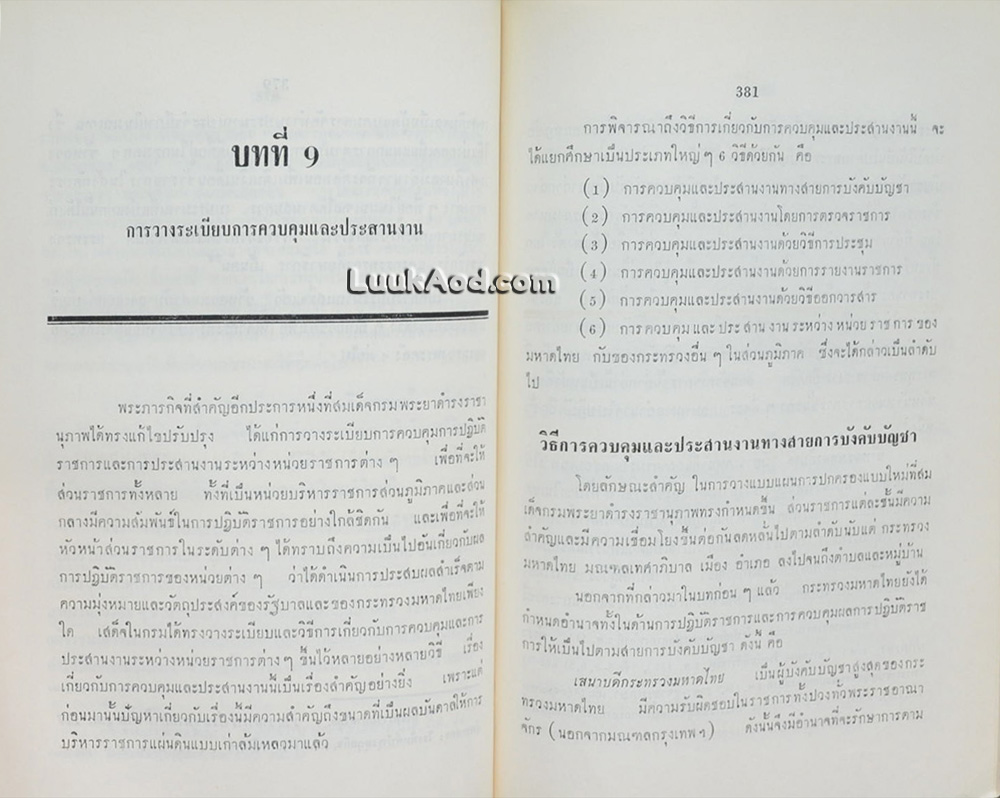 บทที่ 9
การวางระเบียบการควบคุมและประสานงาน
LuukAod.com
พระภารกิจที่สำคัญอีกประการหนึ่งที่สมเด็จกรมพระยาดำรงราชา
นุภาพได้ทรงแก้ไขปรับปรุง ได้แก่การวางระเบียบการควบคุมการปฏิบัติ
ราชการและการประสานงานระหว่างหน่วยราชการต่าง ๆ เพื่อที่จะให้
ส่วนราชการทั้งหลาย ทั้งที่เป็นหน่วยบริหารราชการส่วนภูมิภาคและส่วน
กลางมีความสัมพันธ์ในการปฏิบัติราชการอย่างใกล้ชิดกัน และเพื่อที่จะให้
หัวหน้าส่วนราชการในระดับต่าง ๆ ได้ทราบถึงความเป็นไปอันเกี่ยวกับผล
การปฏิบัติราชการของหน่วยต่าง ๆ ว่าได้ดำเนินการประสบผลสำเร็จตาม
ความมุ่งหมายและวัตถุประสงค์ของรัฐบาลและของกระทรวงมหาดไทยเพียง
ใด เสด็จในกรมได้ทรงวางระเบียบและวิธีการเกี่ยวกับการควบคุมและการ
ประสานงานระหว่างหน่วยราชการต่างๆ ขึ้นไว้หลายอย่างหลายวิธี เรื่อง
เกี่ยวกับการควบคุมและประสานงานนี้เป็นเรื่องสำคัญอย่างยิ่ง เพราะแต่
ก่อนมานั้นปัญหาเกี่ยวกับเรื่องนี้มีความสำคัญถึงขนาดที่เป็นผลบันดาลให้การ
บริหารราชการแผ่นดินแบบเก่าล้มเหลวมาแล้ว
381
การพิจารณาถึงวิธีการเกี่ยวกับการควบคุมและประสานงานนี้ จะ
ได้แยกศึกษาเป็นประเภทใหญ่ ๆ 6 วิธีด้วยกัน คือ
(1) การควบคุมและประสานงานทางสายการบังคับบัญชา
(2) การควบคุมและประสานงานโดยการตรวจราชการ
(3) การควบคุมและประสานงานด้วยวิธีการประชุม
(4) การควบคุมและประสานงานด้วยการรายงานราชการ
(5) การควบคุมและประสานงานด้วยวิธีออกวารสาร
(6) การควบคุมและประสานงานระหว่างหน่วยราชการของ
มหาดไทย กับของกระทรวงอื่น ๆ ในส่วนภูมิภาค ซึ่งจะได้กล่าวเป็นลำดับ
ไป
วิธีการควบคุมและประสานงานทางสายการบังคับบัญชา
โดยลักษณะสำคัญ ในการวางแบบแผนการปกครองแบบใหม่ที่สม
เด็จกรมพระยาดำรงราชานุภาพทรงกำหนดขึ้น ส่วนราชการแต่ละชั้นมีความ
สำคัญและมีความเชื่อมโยงขึ้นต่อกันลดหลั่นไปตามลำดับนับแต่ กระทรวง
มหาดไทย มณฑลเทศาภิบาล เมือง อำเภอ ลงไปจนถึงตำบลและหมู่บ้าน
นอกจากที่กล่าวมาในบทก่อน ๆ แล้ว กระทรวงมหาดไทยยังได้
กำหนดอำนาจทั้งในด้านการปฏิบัติราชการและการควบคุมผลการปฏิบัติราช
การให้เป็นไปตามสายการบังคับบัญชา ดังนี้ คือ
เสนาบดีกระทรวงมหาดไทย เป็นผู้บังคับบัญชาสูงสุดของกระ
ทรวงมหาดไทย มีความรับผิดชอบในราชการทั้งปวงทั่วพระราชอาณา
จักร (นอกจากมณฑลกรุงเทพฯ) ดังนั้นจึงมีอำนาจที่จะรักษาการตาม